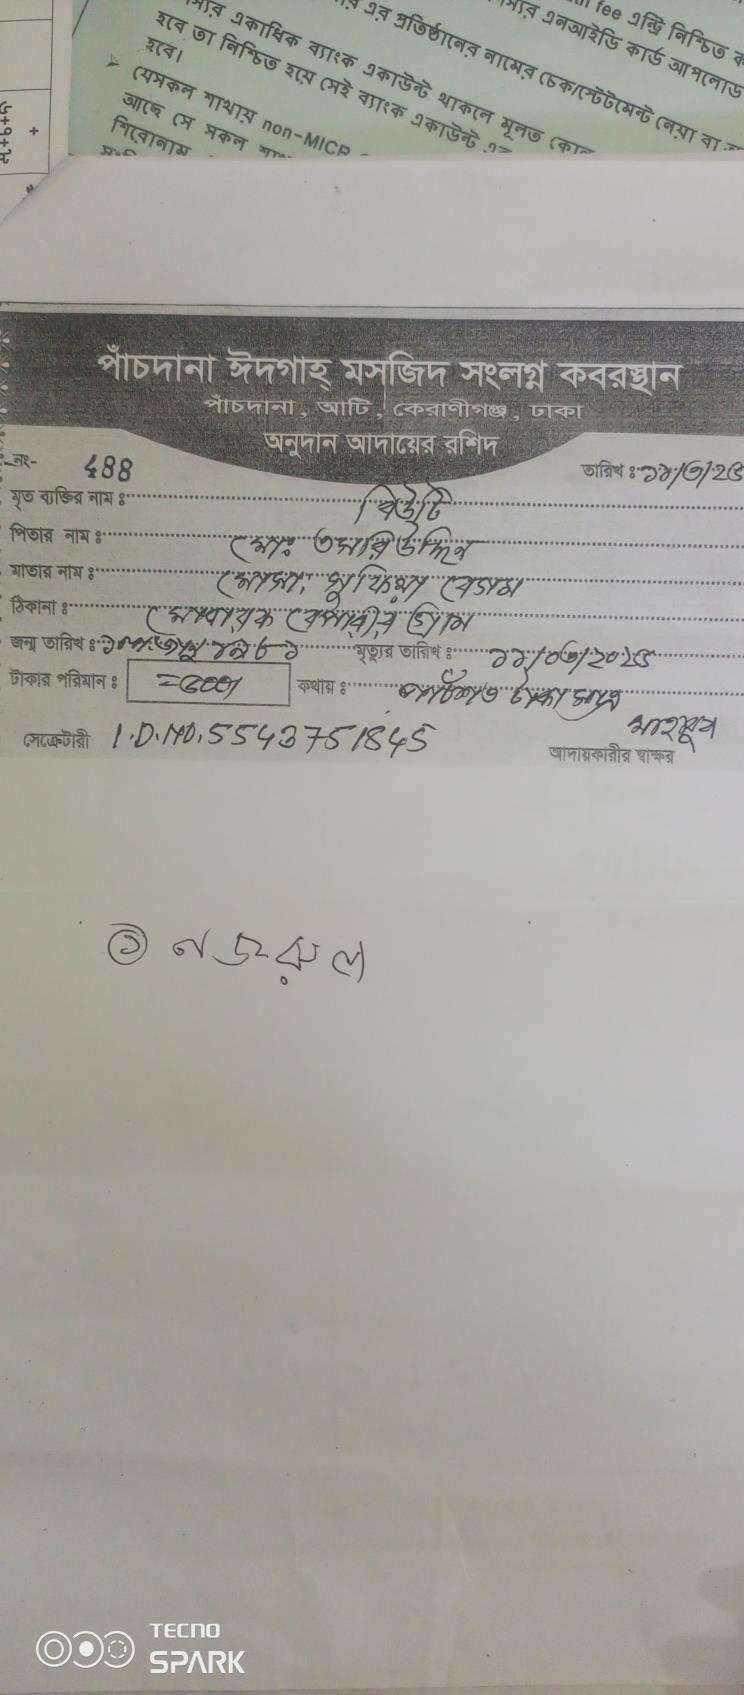 fee এন্ট্রি নিশ্চিত
এনআইডি কার্ড আপলোড
এর প্রতিষ্ঠানের নামের চেক/স্টেটমেন্ট নেয়া বা
একাধিক ব্যাংক একাউন্ট থাকলে মূলত কোন
হবে তা নিশ্চিত হয়ে সেই ব্যাংক একাউন্ট
হবে।
➢ যেসকল শাখায় non-MICR
আছে সে সকল
শিরোনাম
পাঁচদানা ঈদগাহ্ মসজিদ সংলগ্ন কবরস্থান
পাঁচদানা, আটি, কেরাণীগঞ্জ, ঢাকা
অনুদান আদায়ের রশিদ
নং- 488 তারিখ ঃ ১১/৩/২৫
মৃত ব্যক্তির নাম ঃ বিউটি
পিতার নাম ঃ মোঃ তমারিউদ্দিন
মাতার নাম ঃ মোসা, সুফিয়া বেগম
ঠিকানা ঃ মোবারক বেপারীর গ্রাম
জন্ম তারিখ ঃ মৃত্যুর তারিখ ঃ ১১/০৩/২০২৫
টাকার পরিমান ঃ =৫০০/ কথায় ঃ পাঁচশত টাকা মাত্র
সেক্রেটারী I.D.NO. 5543751845 মাহবুব
আদায়কারীর স্বাক্ষর
① নজরুল
TECNO
SPARK